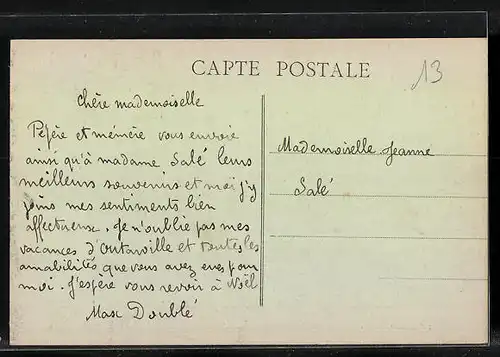 CARTE POSTALE
13
Chère mademoiselle
Pépère et mémère vous envoie
ainsi qu'à madame Salé leurs
meilleurs souvenirs et moi j'y
joins mes sentiments bien
affectueux. Je n'oublie pas mes
vacances d' et toutes les
amabilités que vous avez eues pour
moi. J'espère vous revoir à Noël
Max Doublé
Mademoiselle Jeanne
Salé